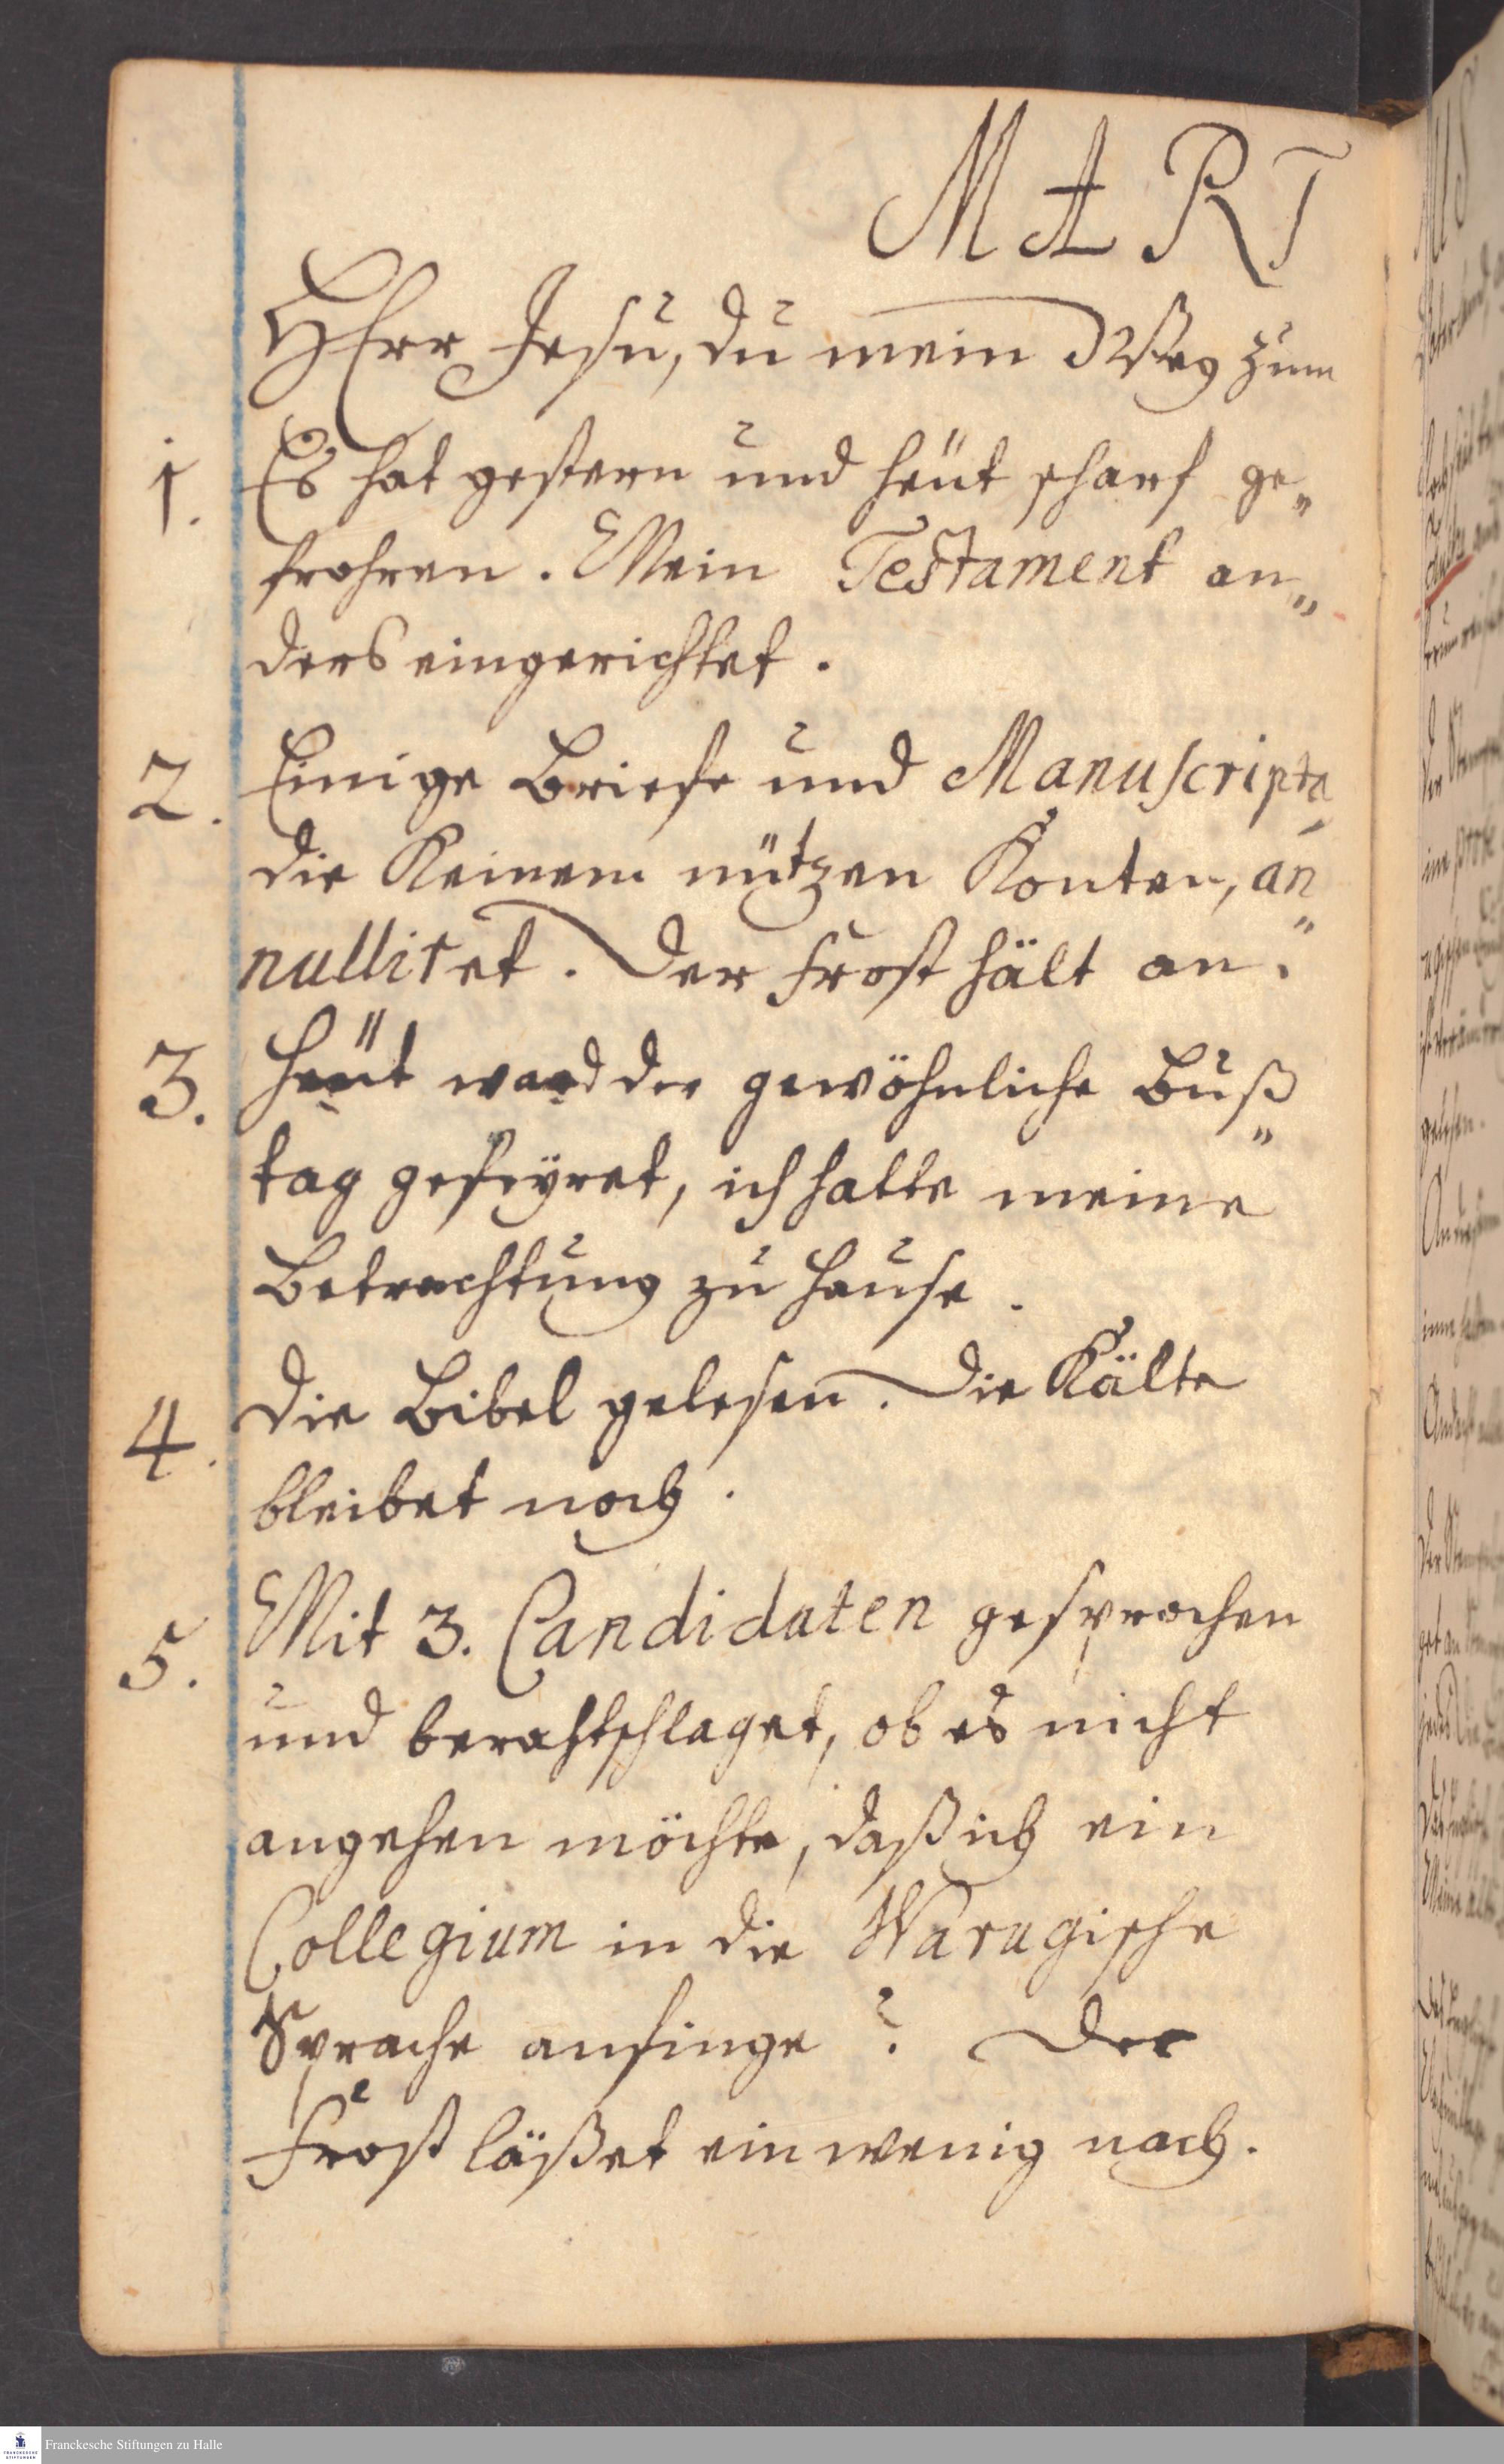 MART
HErr Jesu, du mein Weg zum
1. Es hat gestern und heüt scharf ge„
frohren. Mein Testament an„
ders eingerichtet.
2. Einige Briefe und Manuscripta,
die Keinem nützen Konten, an„
nulliret. Der Frost hält an.
3. Heüt ward der gewöhnliche Buß„
tag gefeÿret, ich hatte meine
Betrachtung zu Hause.
4. Die Bibel gelesen. Die Kälte
bleibet noch.
5. Mit 3. Candidaten gesprochen
und berahtschlaget, ob es nicht
angehen möchte, daß ich ein
Collegium in die Warugische
Sprache anfinge? Der
Frost läßet ein wenig nach.
FRANCKESCHE STIFTUNGEN
Franckesche Stiftungen zu Halle